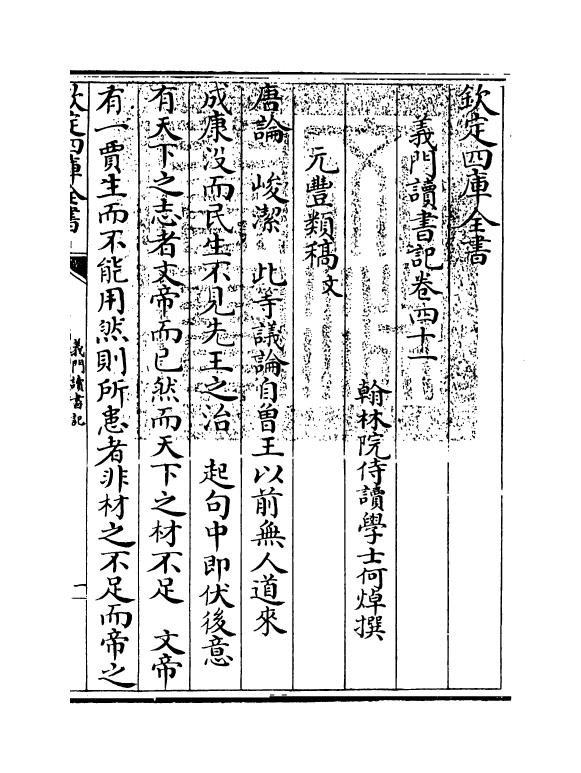 欽定四庫全書
義門讀書記卷四十一
翰林院侍讀學士何焯撰
元豐類稿文
唐論 峻潔 此等議論自曽王以前無人道來
成康沒而民生不見先王之治 起句中即伏後意
有天下之志者文帝而已然而天下之材不足 文帝
有一賈生而不能用然則所患者非材之不足而帝之
欽定四庫全書
義門讀書記
一